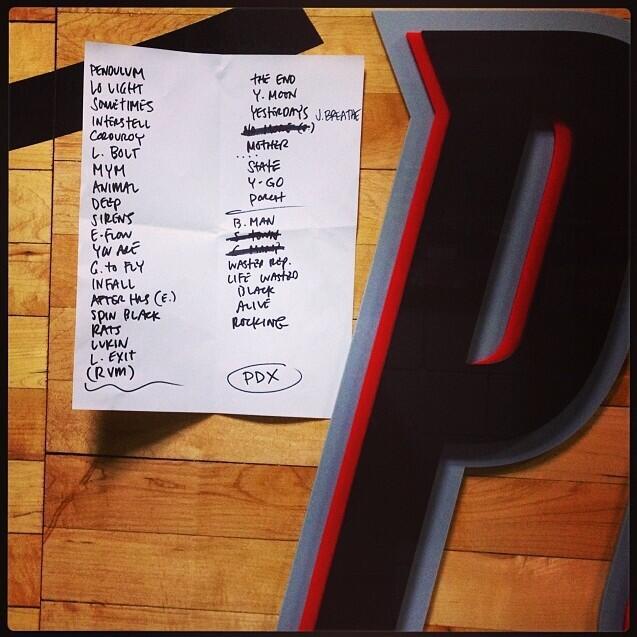 PENDULUM
LO LIGHT
SOMETIMES
INTERSTELL
CORDUROY
L. BOLT
MYM
ANIMAL
DEEP
SIRENS
E-FLOW
YOU ARE
G. TO FLY
INFALL
AFTER HRS (E.)
SPIN BLACK
RATS
LUKIN
L. EXIT
(RVM)
THE END
Y. MOON
YESTERDAYS J. BREATHE
MOTHER
STATE
Y-GO
PORCH
B. MAN
WASTED REP.
LIFE WASTED
BLACK
ALIVE
ROCKING
PDX
P